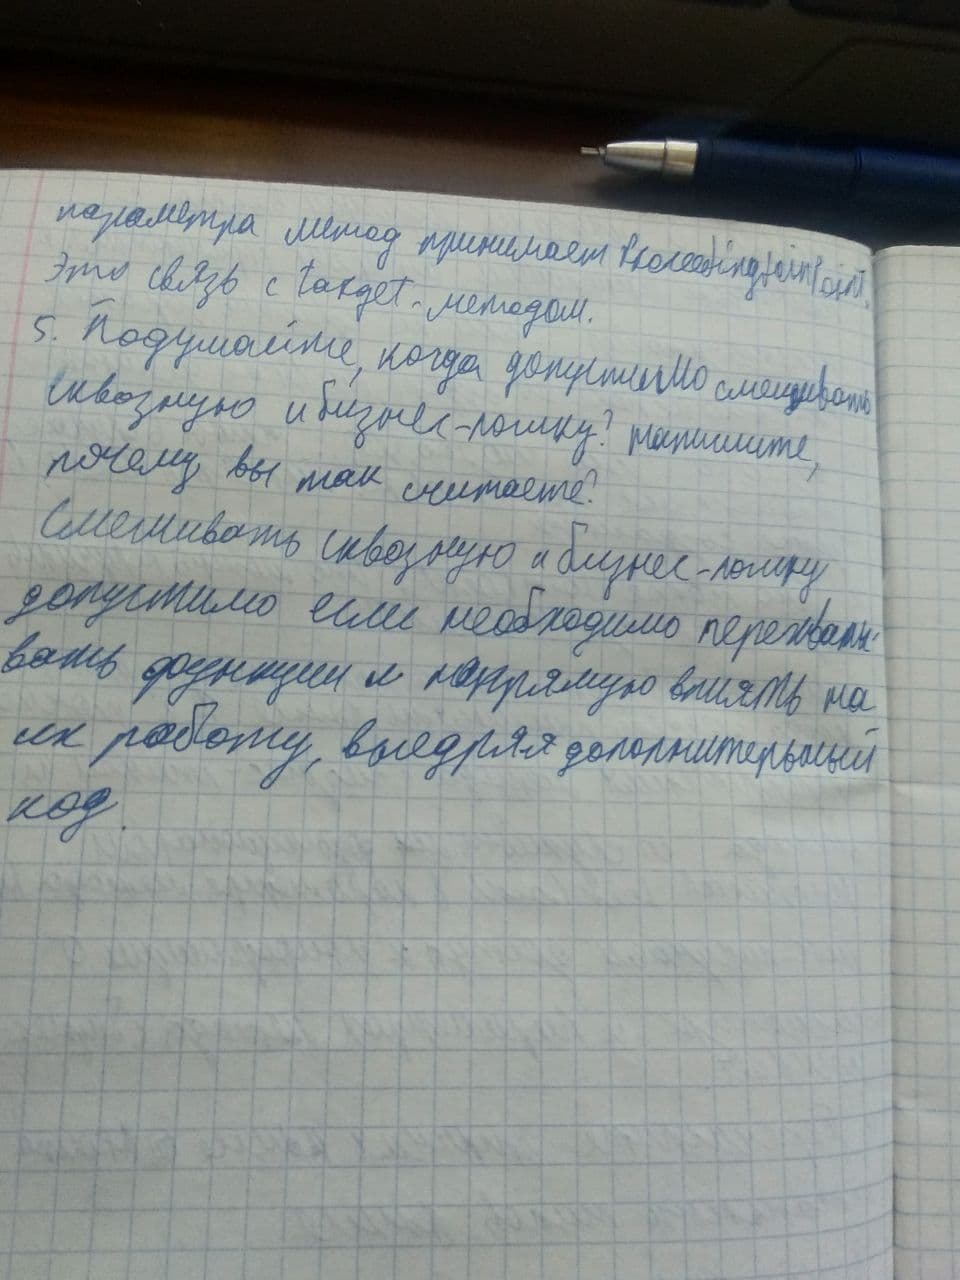 параметра метод принимает ProceedingJoinPoint.
Это связь с target-методом.
5. Подумайте, когда допустимо смешивать
сквозную и бизнес-логику? Напишите,
почему вы так считаете?
Смешивать сквозную и бизнес-логику
допустимо если необходимо перехваты-
вать функции и напрямую влиять на
их работу, внедряя дополнительный
код.